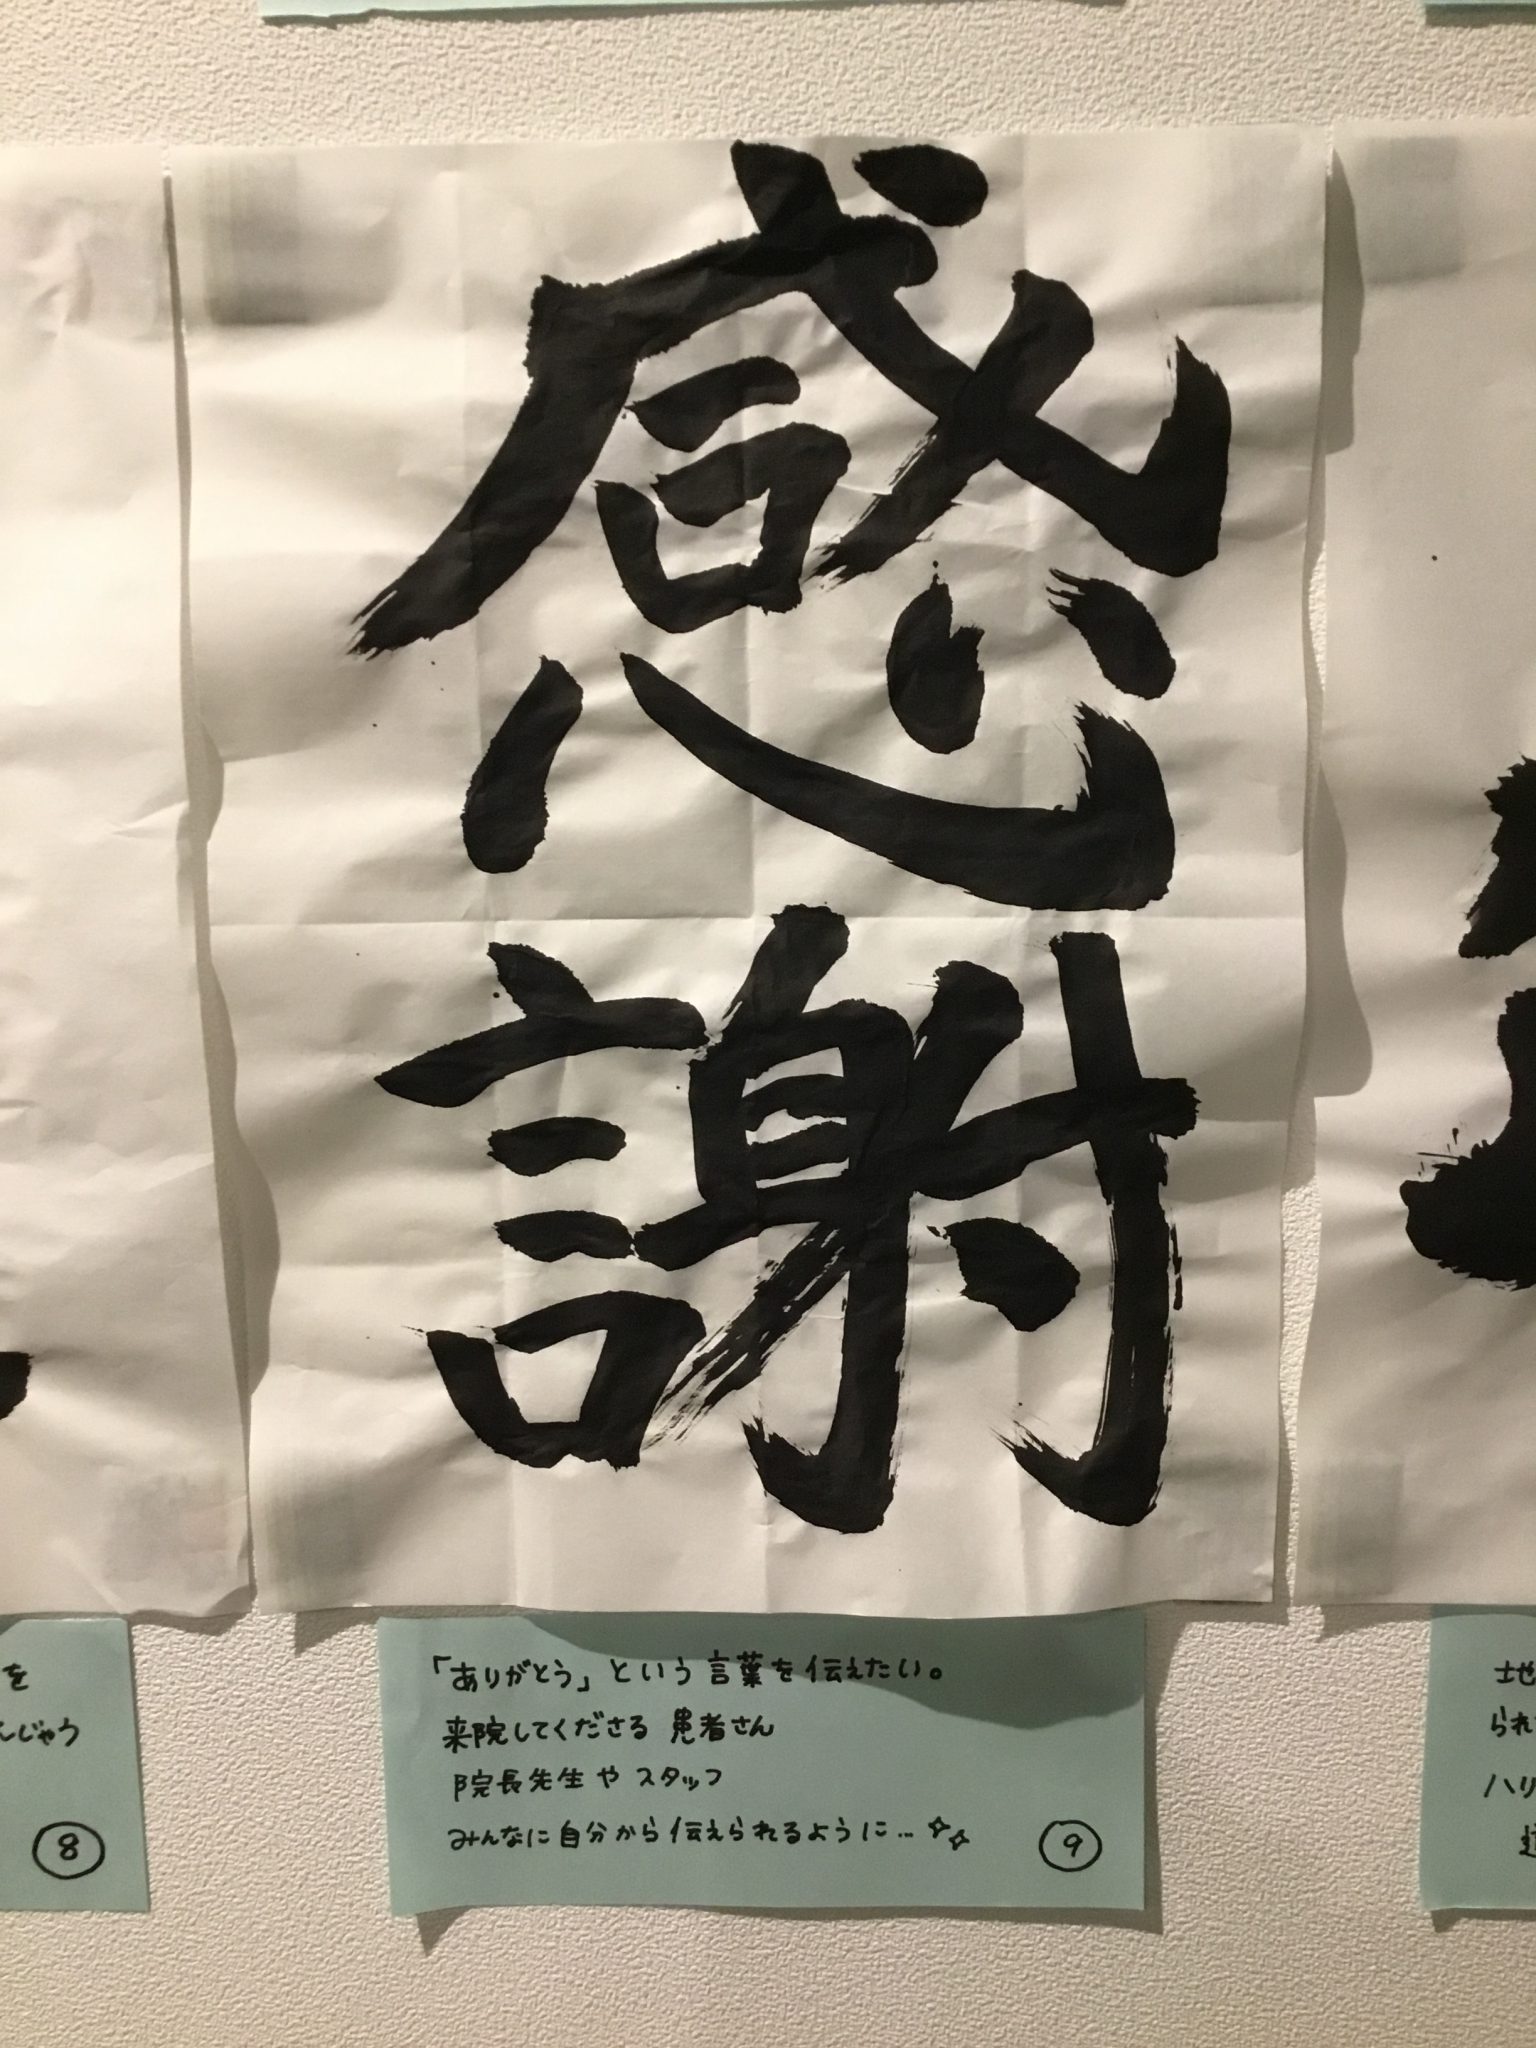 感謝
「ありがとう」という言葉を伝えたい。
来院してくださる 患者さん
院長先生や スタッフ
みんなに自分から伝えられるように…
⑨
を
じゅう
⑧
地
られ
ハリ